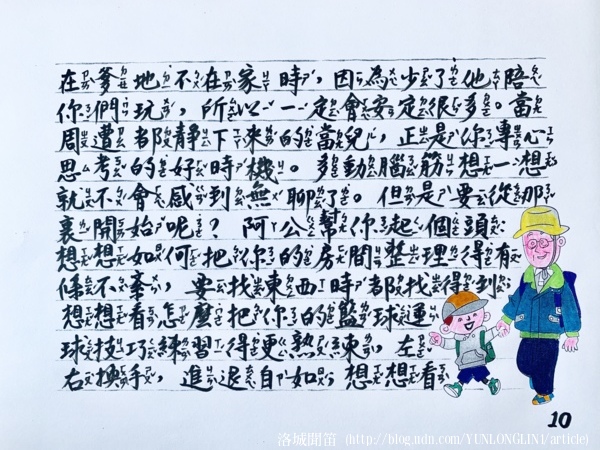 在爹地不在家時，因為少了他陪
你們玩，所以一定會安定很多。當
周遭都靜下來的當兒，正是你專心
思考的好時機。多動腦筋想一想
就不會感到無聊了。但是要從那
裏開始呢？阿公幫你起個頭
想想如何把你的房間整理得有
條不紊，要找東西時都找得到
想想看怎麼把你的籃球運
球技巧練習得更熟練，左
右換手，進退自如 想想看
10
洛城閒笛 (http://blog.udn.com/YUNLONGLIN1/article)